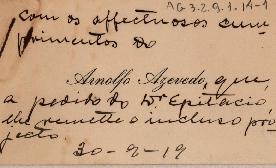 AG 3.2.9.1.14-1
com os affectuosos cum
primentos do
Arnolfo Azevedo, que,
a pedido do Dr Epitacio,
lhe remette o incluso pro
jecto
30-9-19